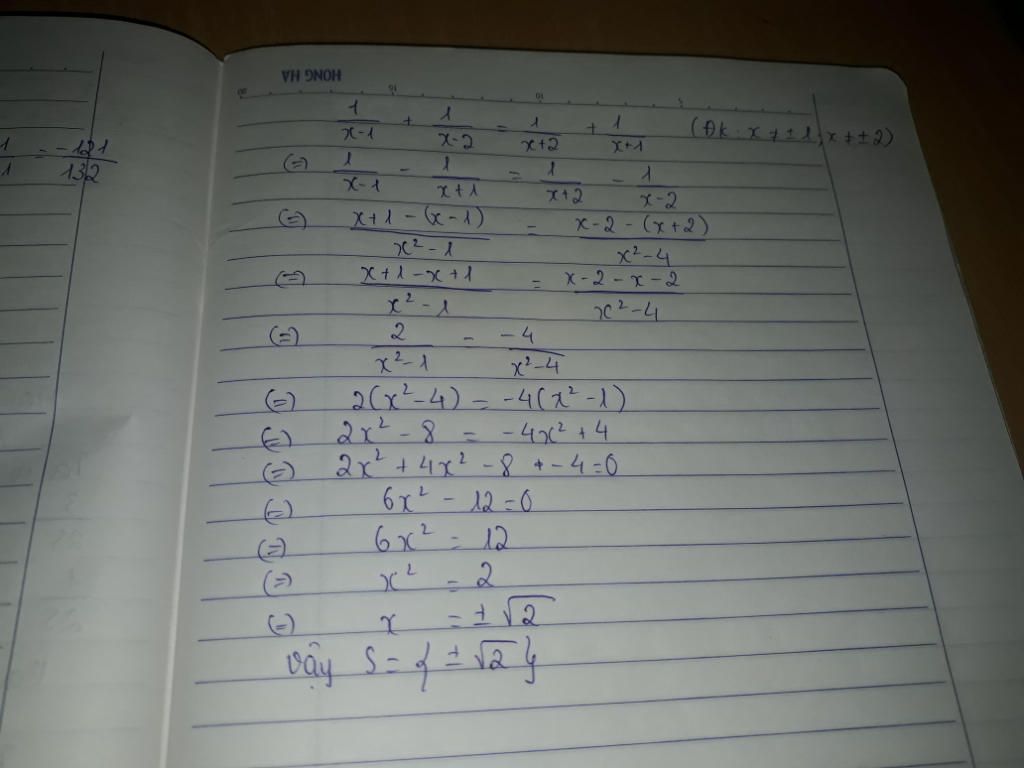 HONG HA
1/(x-1) + 1/(x-2) = 1/(x+2) + 1/(x+1) (Đk: x ≠ ±1, x ≠ ±2)
(=) 1/(x-1) - 1/(x+1) = 1/(x+2) - 1/(x-2)
(=) (x+1-(x-1))/(x²-1) = (x-2-(x+2))/(x²-4)
(=) (x+1-x+1)/(x²-1) = (x-2-x-2)/(x²-4)
(=) 2/(x²-1) = -4/(x²-4)
(=) 2(x²-4) = -4(x²-1)
(=) 2x² - 8 = -4x² + 4
(=) 2x² + 4x² - 8 - 4 = 0
(=) 6x² - 12 = 0
(=) 6x² = 12
(=) x² = 2
(=) x = ±√2
Vậy S = {±√2}
= -121/132